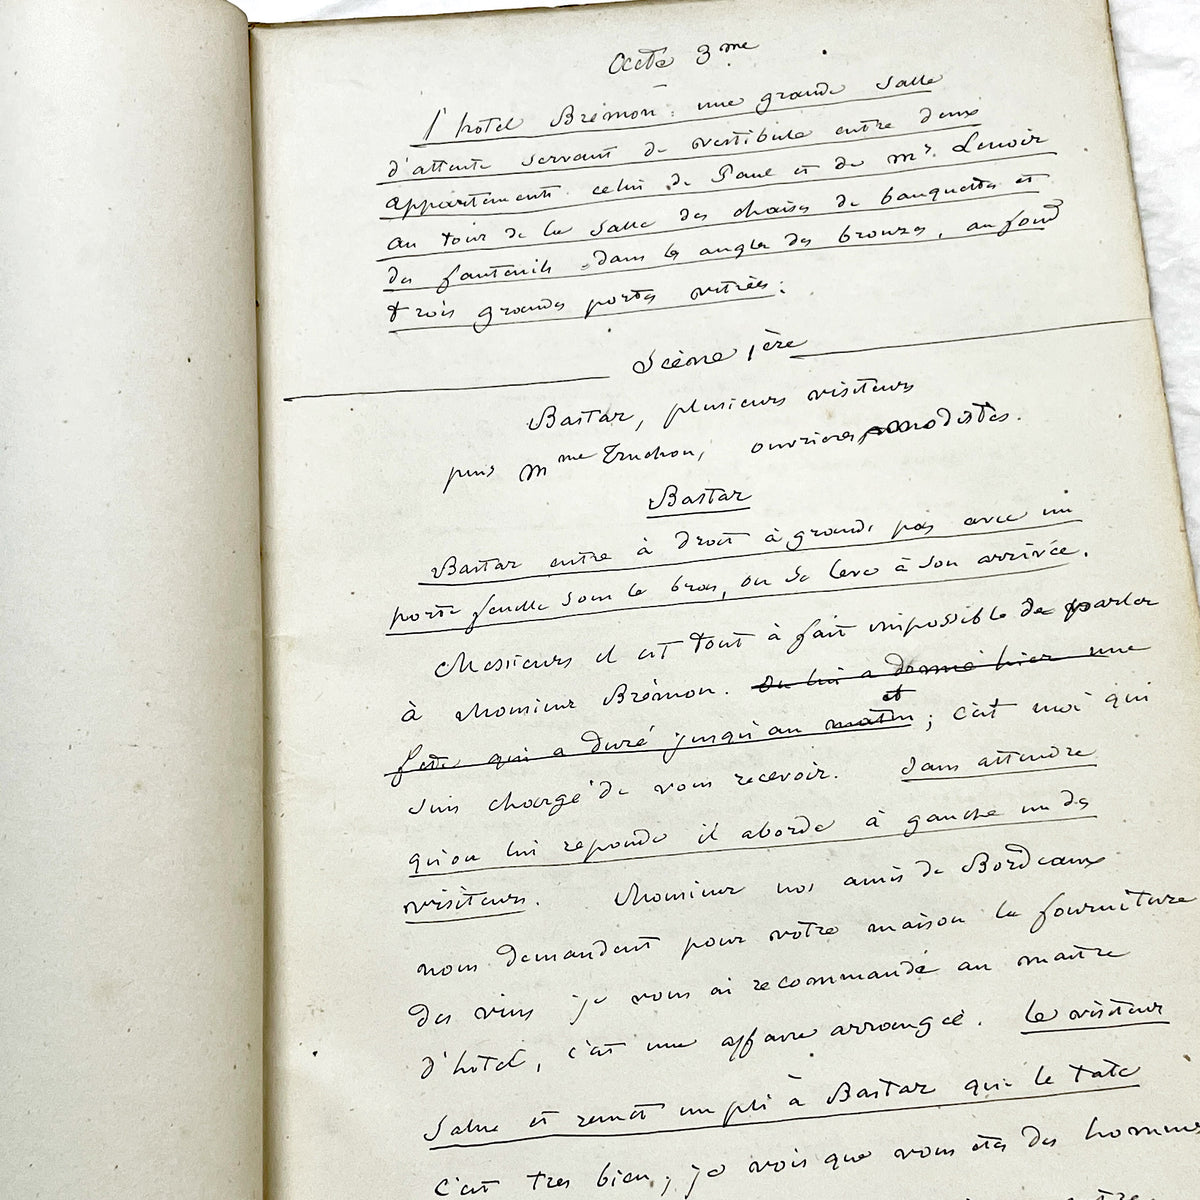 Acte 3me
l'hotel Brémon : une grande salle
d'attente servant de vestibule entre deux
appartements celui de Paul et de mr. Lenoir
au tour de la salle des chaises de banquettes et
des fauteuils dans les angles des bronzes, au fond
trois grandes portes vitrées :
Scène 1ère
Bastar, plusieurs visiteurs
puis mme Truchon, ouvrieres modistes.
Bastar
Bastar entre à droit à grands pas avec un
porte feuille sous le bras, on se leve à son arrivée.
Messieurs il est tout à fait impossible de parler
à Monsieur Brémon. On lui a donné hier une
fete qui a duré jusqu'au matin et ; c'est moi qui
suis chargé de vous recevoir. Sans attendre
qu'on lui reponde il aborde à gauche un des
visiteurs. Monsieur nos amis de Bordeaux
nous demandent pour votre maison la fourniture
des vins je vous ai recommandé au maitre
d'hotel, c'est une affaire arrangée. Le visiteur
salue et remet un pli à Bastar qui le tate
c'est tres bien, je vois que vous etes des hommes